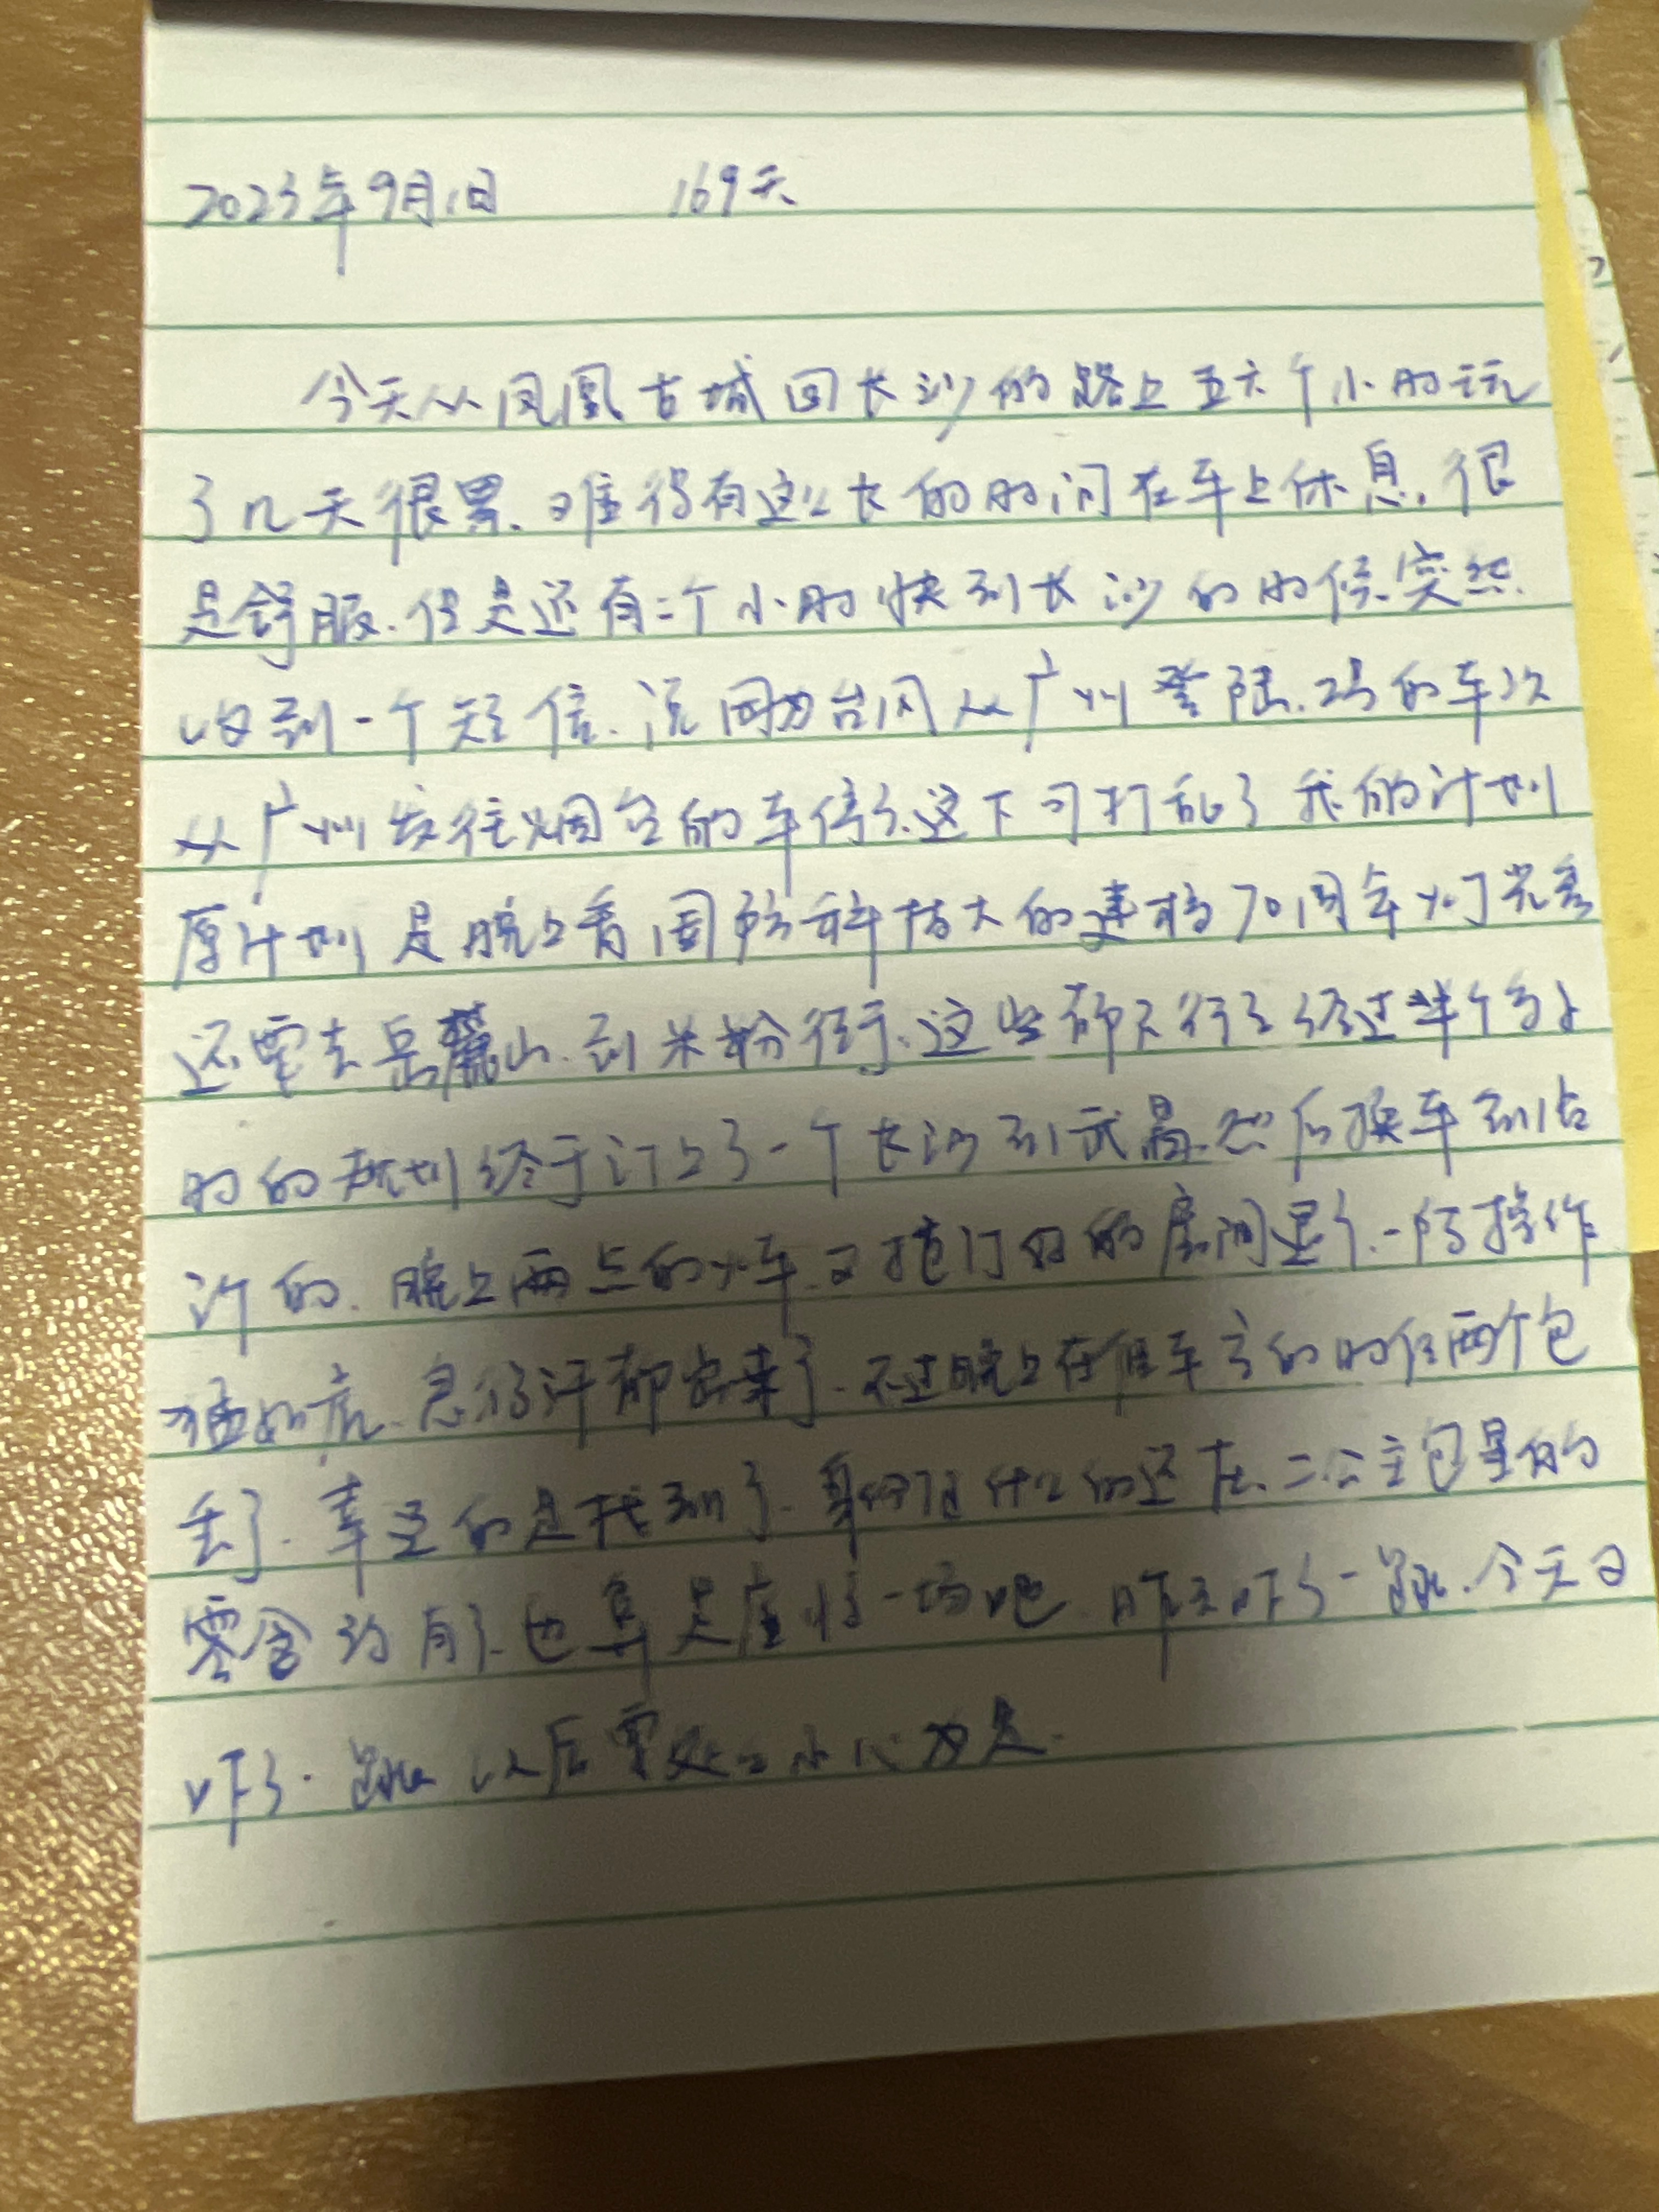 2023年9月1日 169天
今天从凤凰古城回长沙的路上五六个小时玩
了几天很累.难得有这么长的时间在车上休息.很
是舒服.但是还有二个小时快到长沙的时候.突然.
收到一个短信.说因为台风从广州登陆.的车次
从广州发往烟台的车停了.这下可打乱了我的计划
原计划是晚上看国防科技大的建校70周年灯光秀
还要去岳麓山.到米粉街.这些都不行了经过半个多小
时的规划终于订上了一个长沙到武昌.然后换车到
的.晚上两点的火车.又把订好的房间.一阵操作
猛如虎.急得汗都出来了.不过晚上在的时候两个包
丢了.幸运的是找到了.身份证什么的还在.二公主包里的
零食没有了.也算是虚惊一场吧.昨天吓了一跳.今天又
吓了一跳以后要处处小心为是.